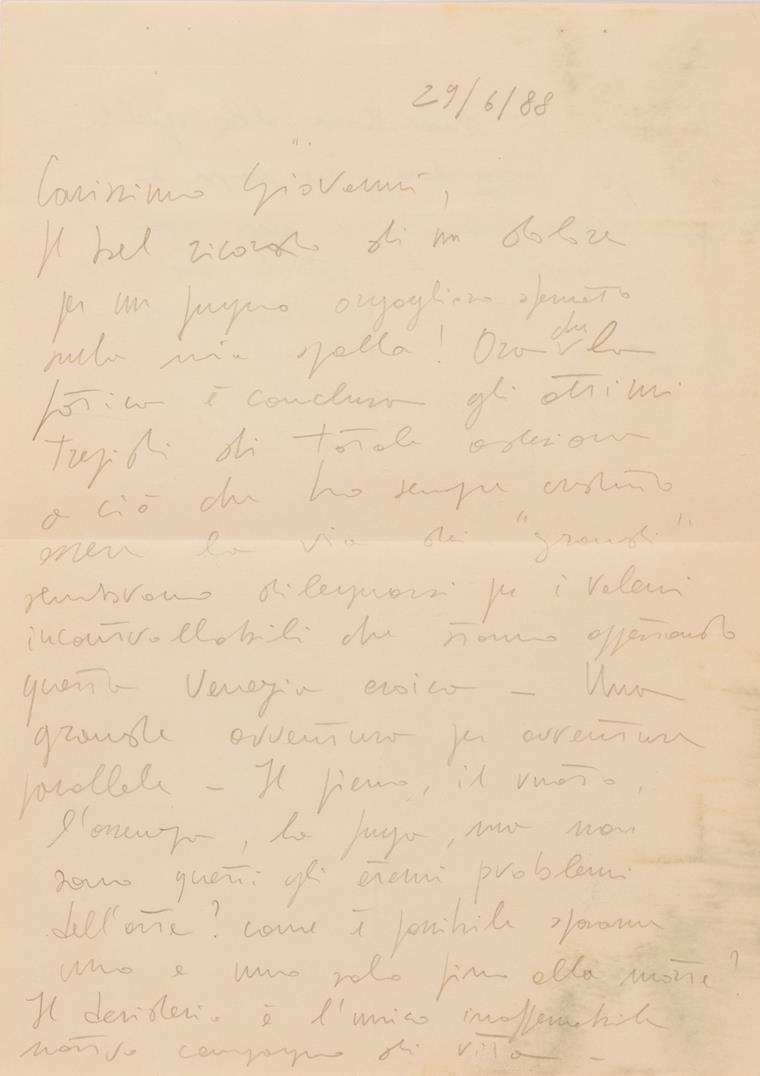 29/6/88
Carissimo Giovanni,
Il bel ricordo di un dolore
per un pugno orgoglioso sferrato
sulla mia spalla! Ora che la
fatica è conclusa gli attimi
di totale adesione
a ciò che ho sempre creduto
essere la via dei "grandi"
sembrano dileguarsi per i veleni
incontrollabili che stanno appestando
questa Venezia eroica - Una
grande avventura per avventure
parallele - Il pieno, il vuoto,
l'assenza, la fuga, ma non
sono questi gli eterni problemi
dell'arte? come è possibile sposarne
uno e uno solo fino alla morte?
Il desiderio è l'unico inafferrabile
nostro compagno di vita -